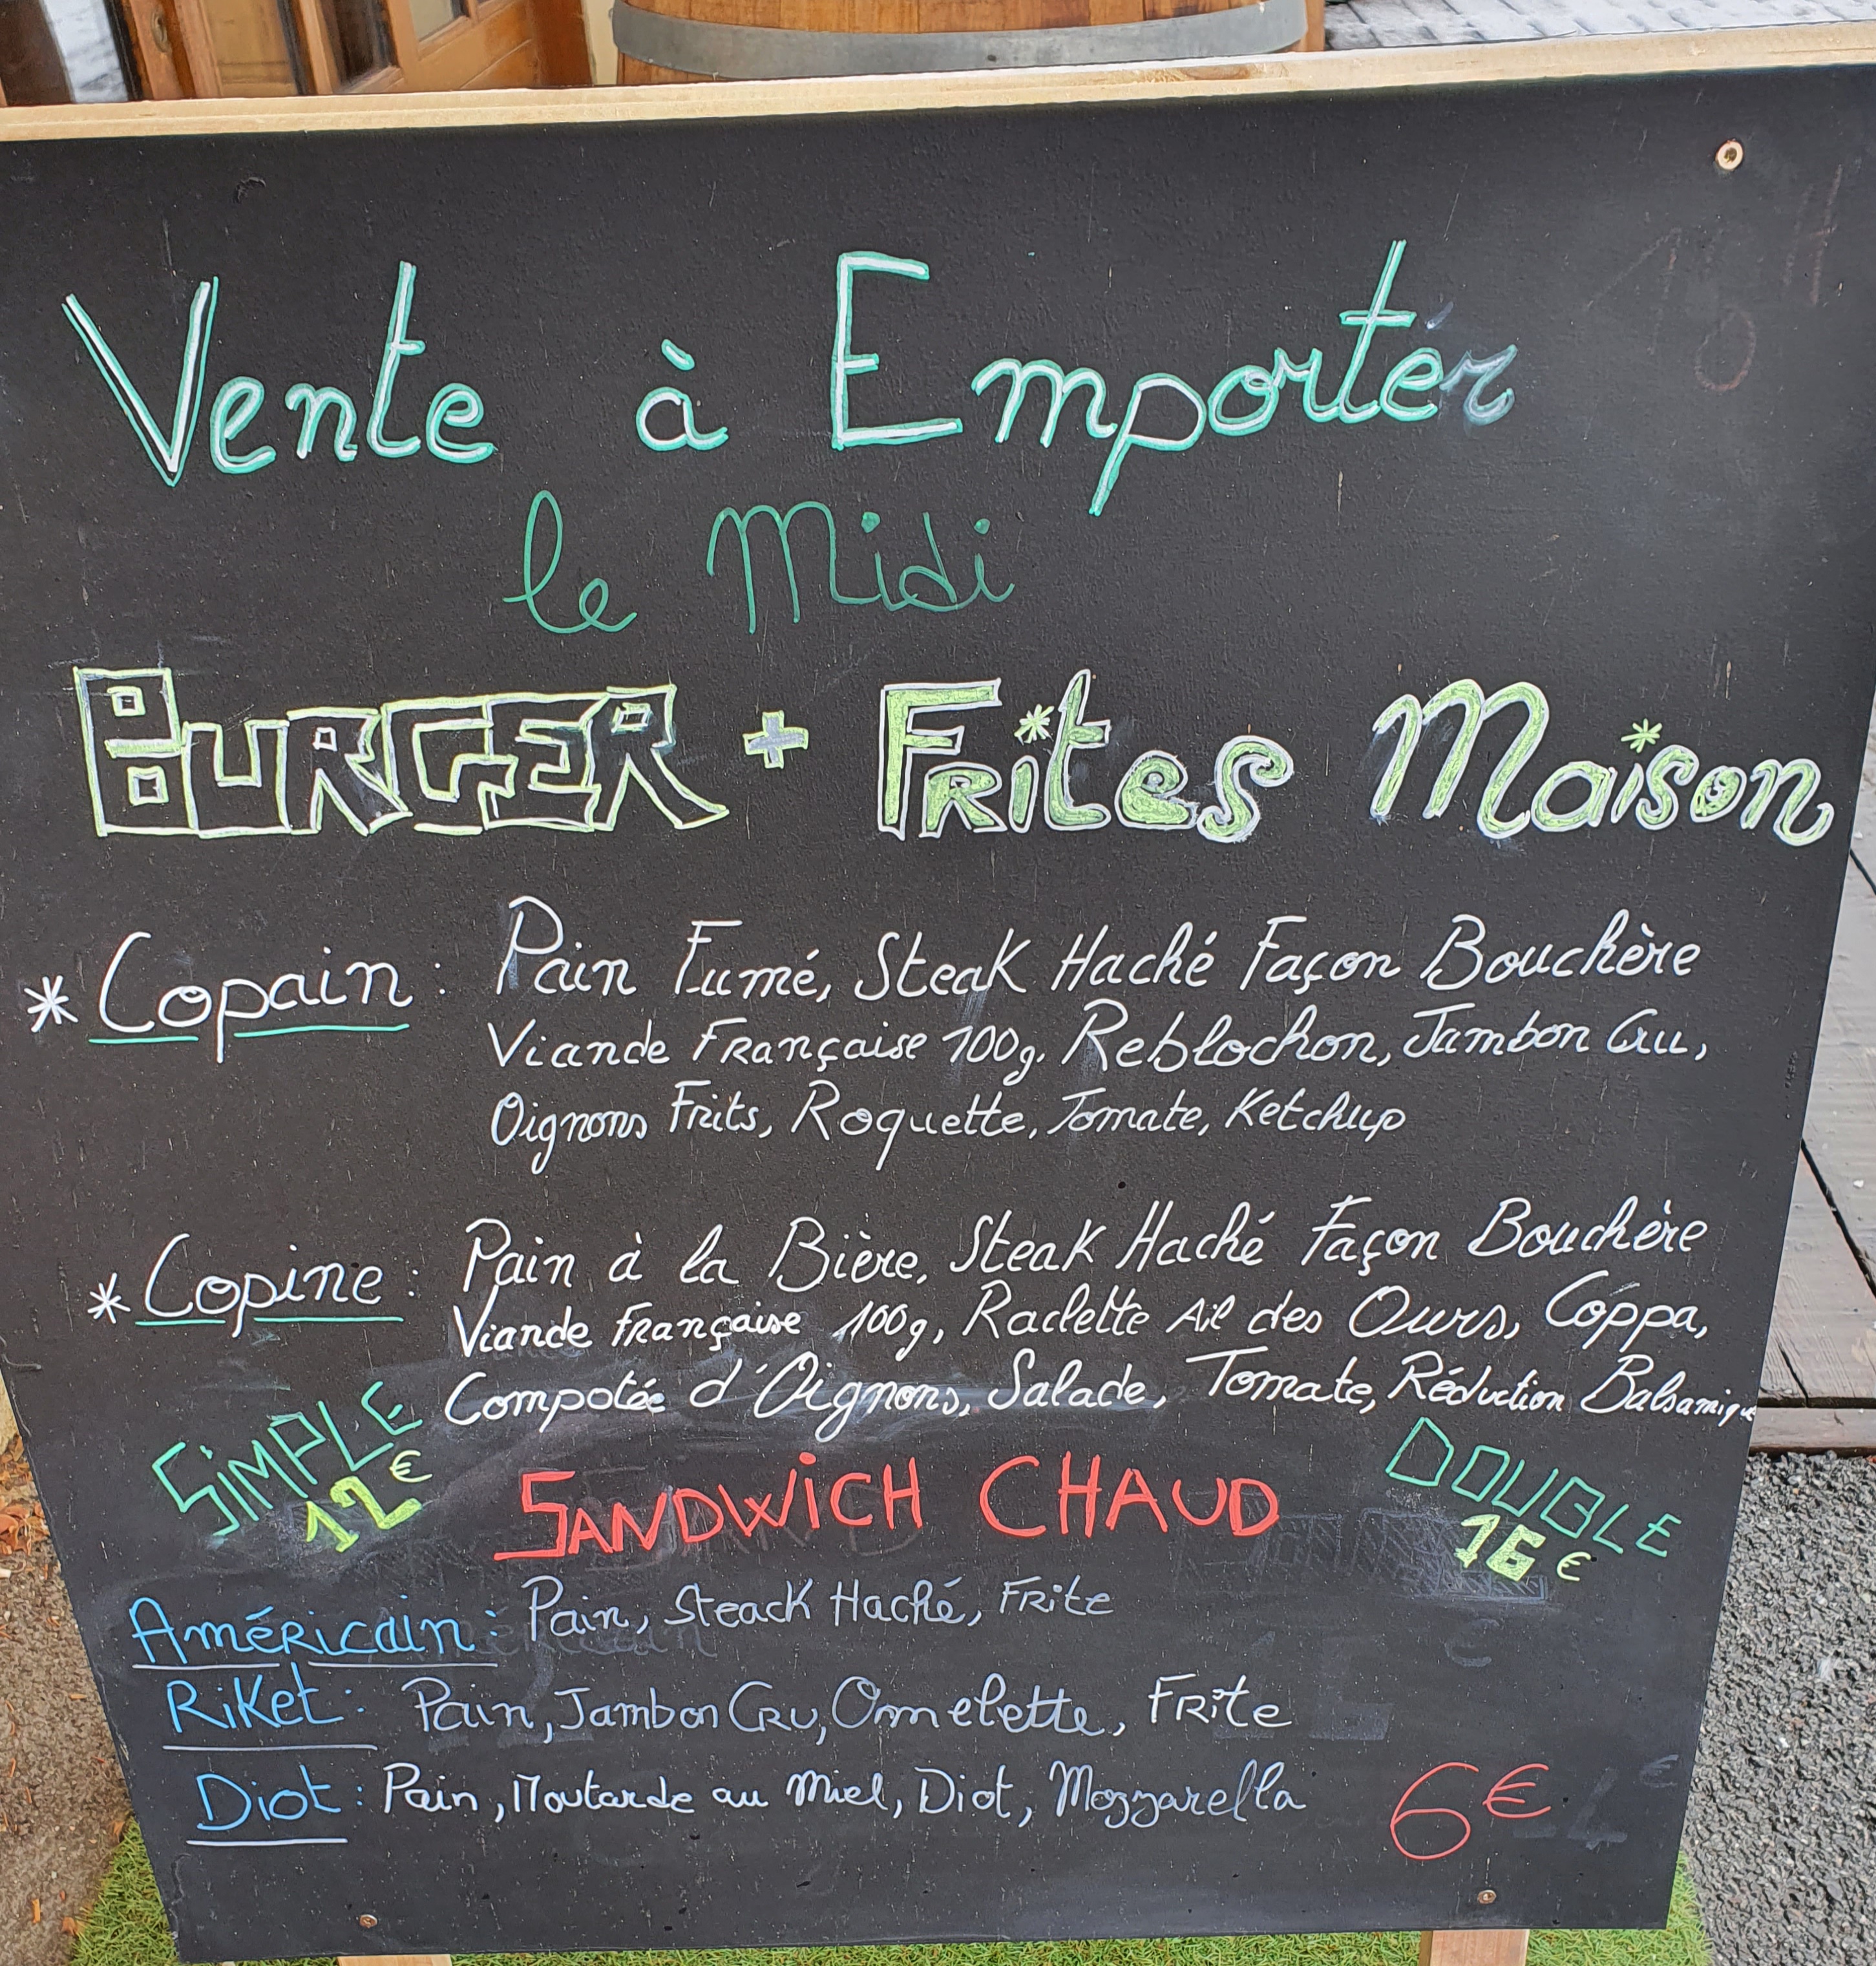 Vente à Emporter
le Midi
BURGER + FRites Maison
* Copain : Pain Fumé, Steak Haché Façon Bouchère
Viande Française 100g, Reblochon, Jambon Cru,
Oignons Frits, Roquette, Tomate, Ketchup
* Copine : Pain à la Bière, Steak Haché Façon Bouchère
Viande Française 100g, Raclette Ail des Ours, Coppa,
Compotée d'Oignons, Salade, Tomate, Réduction Balsamique
SIMPLE
12€
SANDWICH CHAUD
DOUBLE
16€
Américain : Pain, Steack Haché, Frite
Riket : Pain, Jambon Cru, Omelette, Frite
Diot : Pain, Moutarde au Miel, Diot, Mozzarella
6€